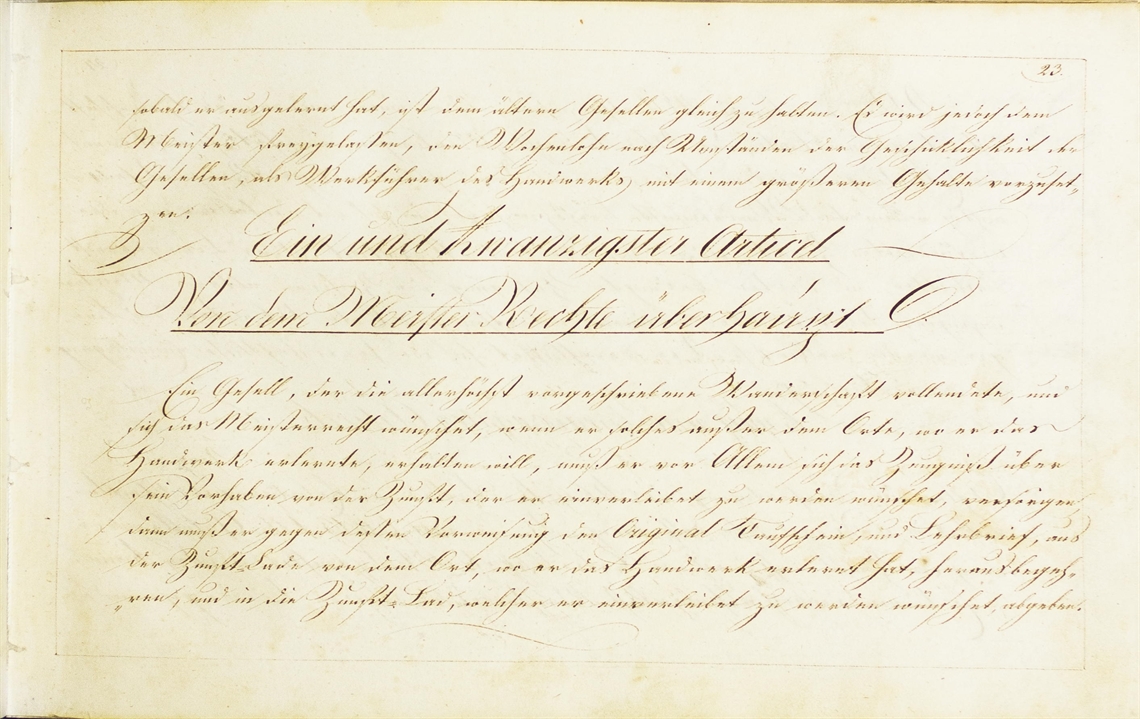 23.
sobald er ausgelernt hat, ist dem ältern Gesellen gleich zu halten. Es wird jedoch dem
Meister freygelassen, den Wochenlohn nach Umständen der Geschicklichkeit der
Gesellen, als Werkführer des Handwerks, mit einem größeren Gehalte vorzuset-
zen.
Ein und Zwanzigster Articel
Von dem Meister Rechte überhaupt
Ein Gesell, der die allerhöchst vorgeschriebene Wanderschaft vollendete, und
sich das Meisterrecht wünschet, wenn er solches außer dem Orte, wo er das
Handwerk erlernte, erhalten will, muß er vor Allem sich das Zeugniß über
sein Vorhaben von der Zunft, der er einverleibet zu werden wünschet, versorgen,
dann muß er gegen dessen Vorweisung den Original Taufschein, und Lehrbrief, aus
der Zunft-Lade von dem Ort, wo er das Handwerk erlernt hat, herausbegeh-
ren, und in die Zunft-Lad, welcher er einverleibet zu werden wünschet, abgeben.